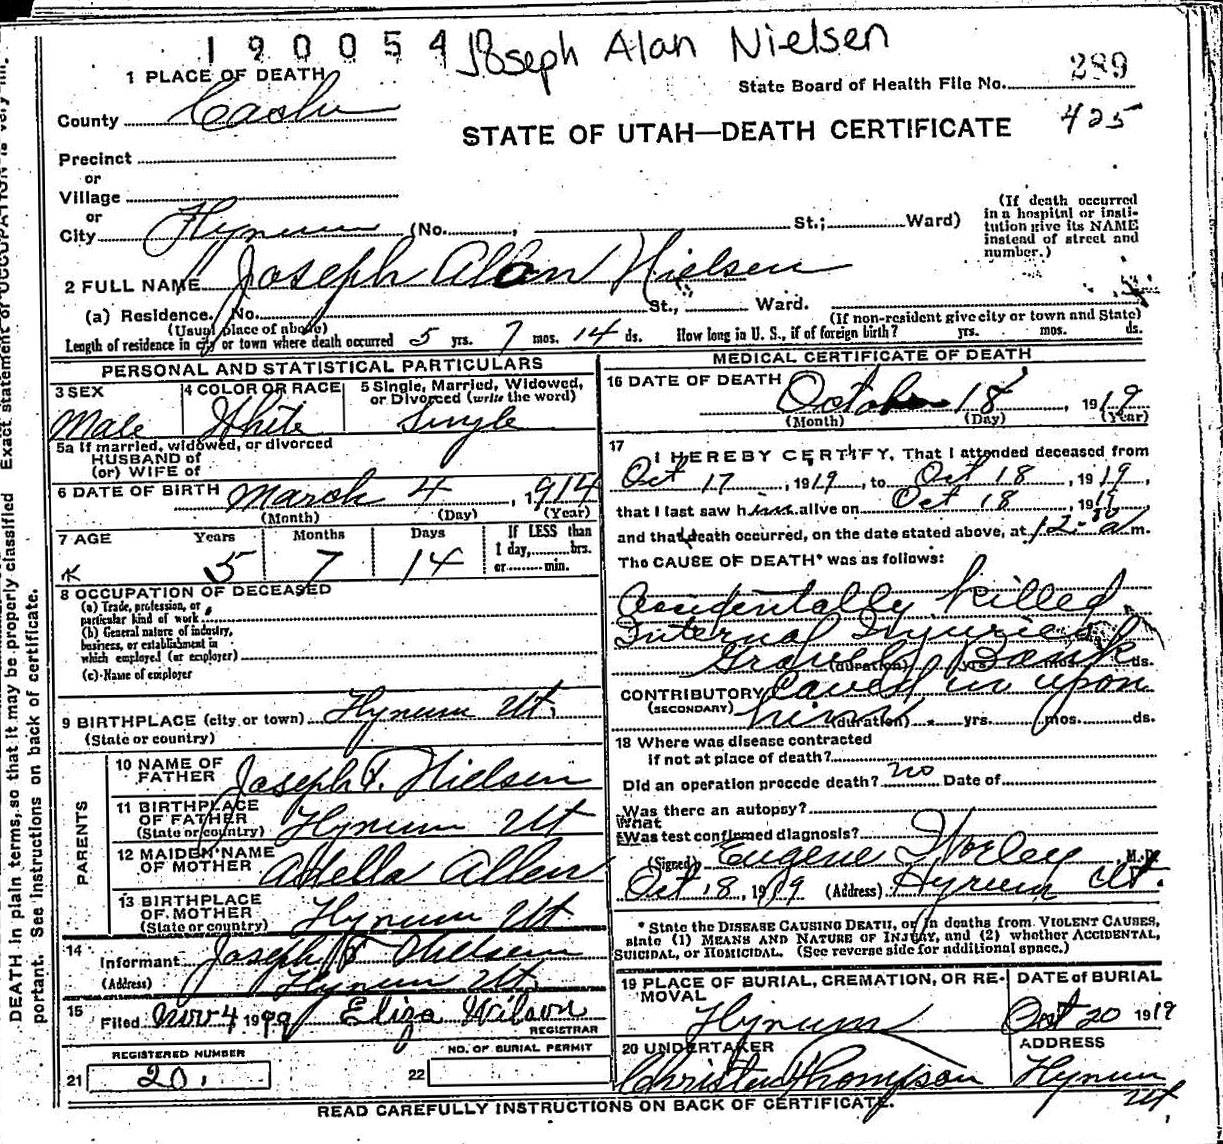 190054
Joseph Alan Nielsen
1 PLACE OF DEATH
State Board of Health File No. 289
County Cache
425
STATE OF UTAH—DEATH CERTIFICATE
Precinct
or
Village
or
City Hyrum (No. , St.; Ward)
(If death occurred in a hospital or insti-
tution give its NAME
instead of street and
number.)
2 FULL NAME Joseph Alan Nielsen
(a) Residence. No. St., Ward.
(Usual place of abode) (If non-resident give city or town and State)
Length of residence in city or town where death occurred 5 yrs. 7 mos. 14 ds. How long in U. S., if of foreign birth? yrs. mos. ds.
PERSONAL AND STATISTICAL PARTICULARS
3 SEX
Male
4 COLOR OR RACE
White
5 Single, Married, Widowed,
or Divorced (write the word)
Single
5a If married, widowed, or divorced
HUSBAND of
(or) WIFE of
6 DATE OF BIRTH March 4, 1914
(Month) (Day) (Year)
7 AGE Years Months Days If LESS than
1 day, hrs.
or min.
5 7 14
8 OCCUPATION OF DECEASED
(a) Trade, profession, or
particular kind of work
(b) General nature of industry,
business, or establishment in
which employed (or employer)
(c) Name of employer
9 BIRTHPLACE (city or town) Hyrum Ut.
(State or country)
PARENTS
10 NAME OF
FATHER Joseph F. Nielsen
11 BIRTHPLACE
OF FATHER
(State or country) Hyrum Ut
12 MAIDEN NAME
OF MOTHER Abella Allen
13 BIRTHPLACE
OF MOTHER
(State or country) Hyrum Ut
14
Informant Joseph F Nielsen
(Address) Hyrum Ut.
15
Filed Nov 4 1919 Eliza Wilson
REGISTRAR
REGISTERED NUMBER
21 20.
NO. OF BURIAL PERMIT
22
MEDICAL CERTIFICATE OF DEATH
16 DATE OF DEATH October 18, 1919
(Month) (Day) (Year)
17
I HEREBY CERTIFY, That I attended deceased from
Oct 17, 1919, to Oct 18, 1919,
that I last saw him alive on Oct 18, 1919
and that death occurred, on the date stated above, at 12-30 a m.
The CAUSE OF DEATH* was as follows:
Accidentally killed
Internal Injuries
Gravelly Bank
(duration) yrs. mos. ds.
CONTRIBUTORY Caved in upon
(SECONDARY) him (duration) yrs. mos. ds.
18 Where was disease contracted
if not at place of death?
Did an operation precede death? no Date of
Was there an autopsy?
What
Was test confirmed diagnosis?
(Signed) Eugene Worley, M.D.
Oct 18, 1919 (Address) Hyrum Ut.
* State the DISEASE CAUSING DEATH, or in deaths from VIOLENT CAUSES,
state (1) MEANS AND NATURE OF INJURY, and (2) whether ACCIDENTAL,
SUICIDAL, or HOMICIDAL. (See reverse side for additional space.)
19 PLACE OF BURIAL, CREMATION, OR RE-
MOVAL
Hyrum
DATE of BURIAL
Oct 20 1919
20 UNDERTAKER
Christen Thompson
ADDRESS
Hyrum
Ut.
READ CAREFULLY INSTRUCTIONS ON BACK OF CERTIFICATE.
DEATH in plain terms, so that it may be properly classified Exact statement of OCCUPATION is very
portant. See instructions on back of certificate.